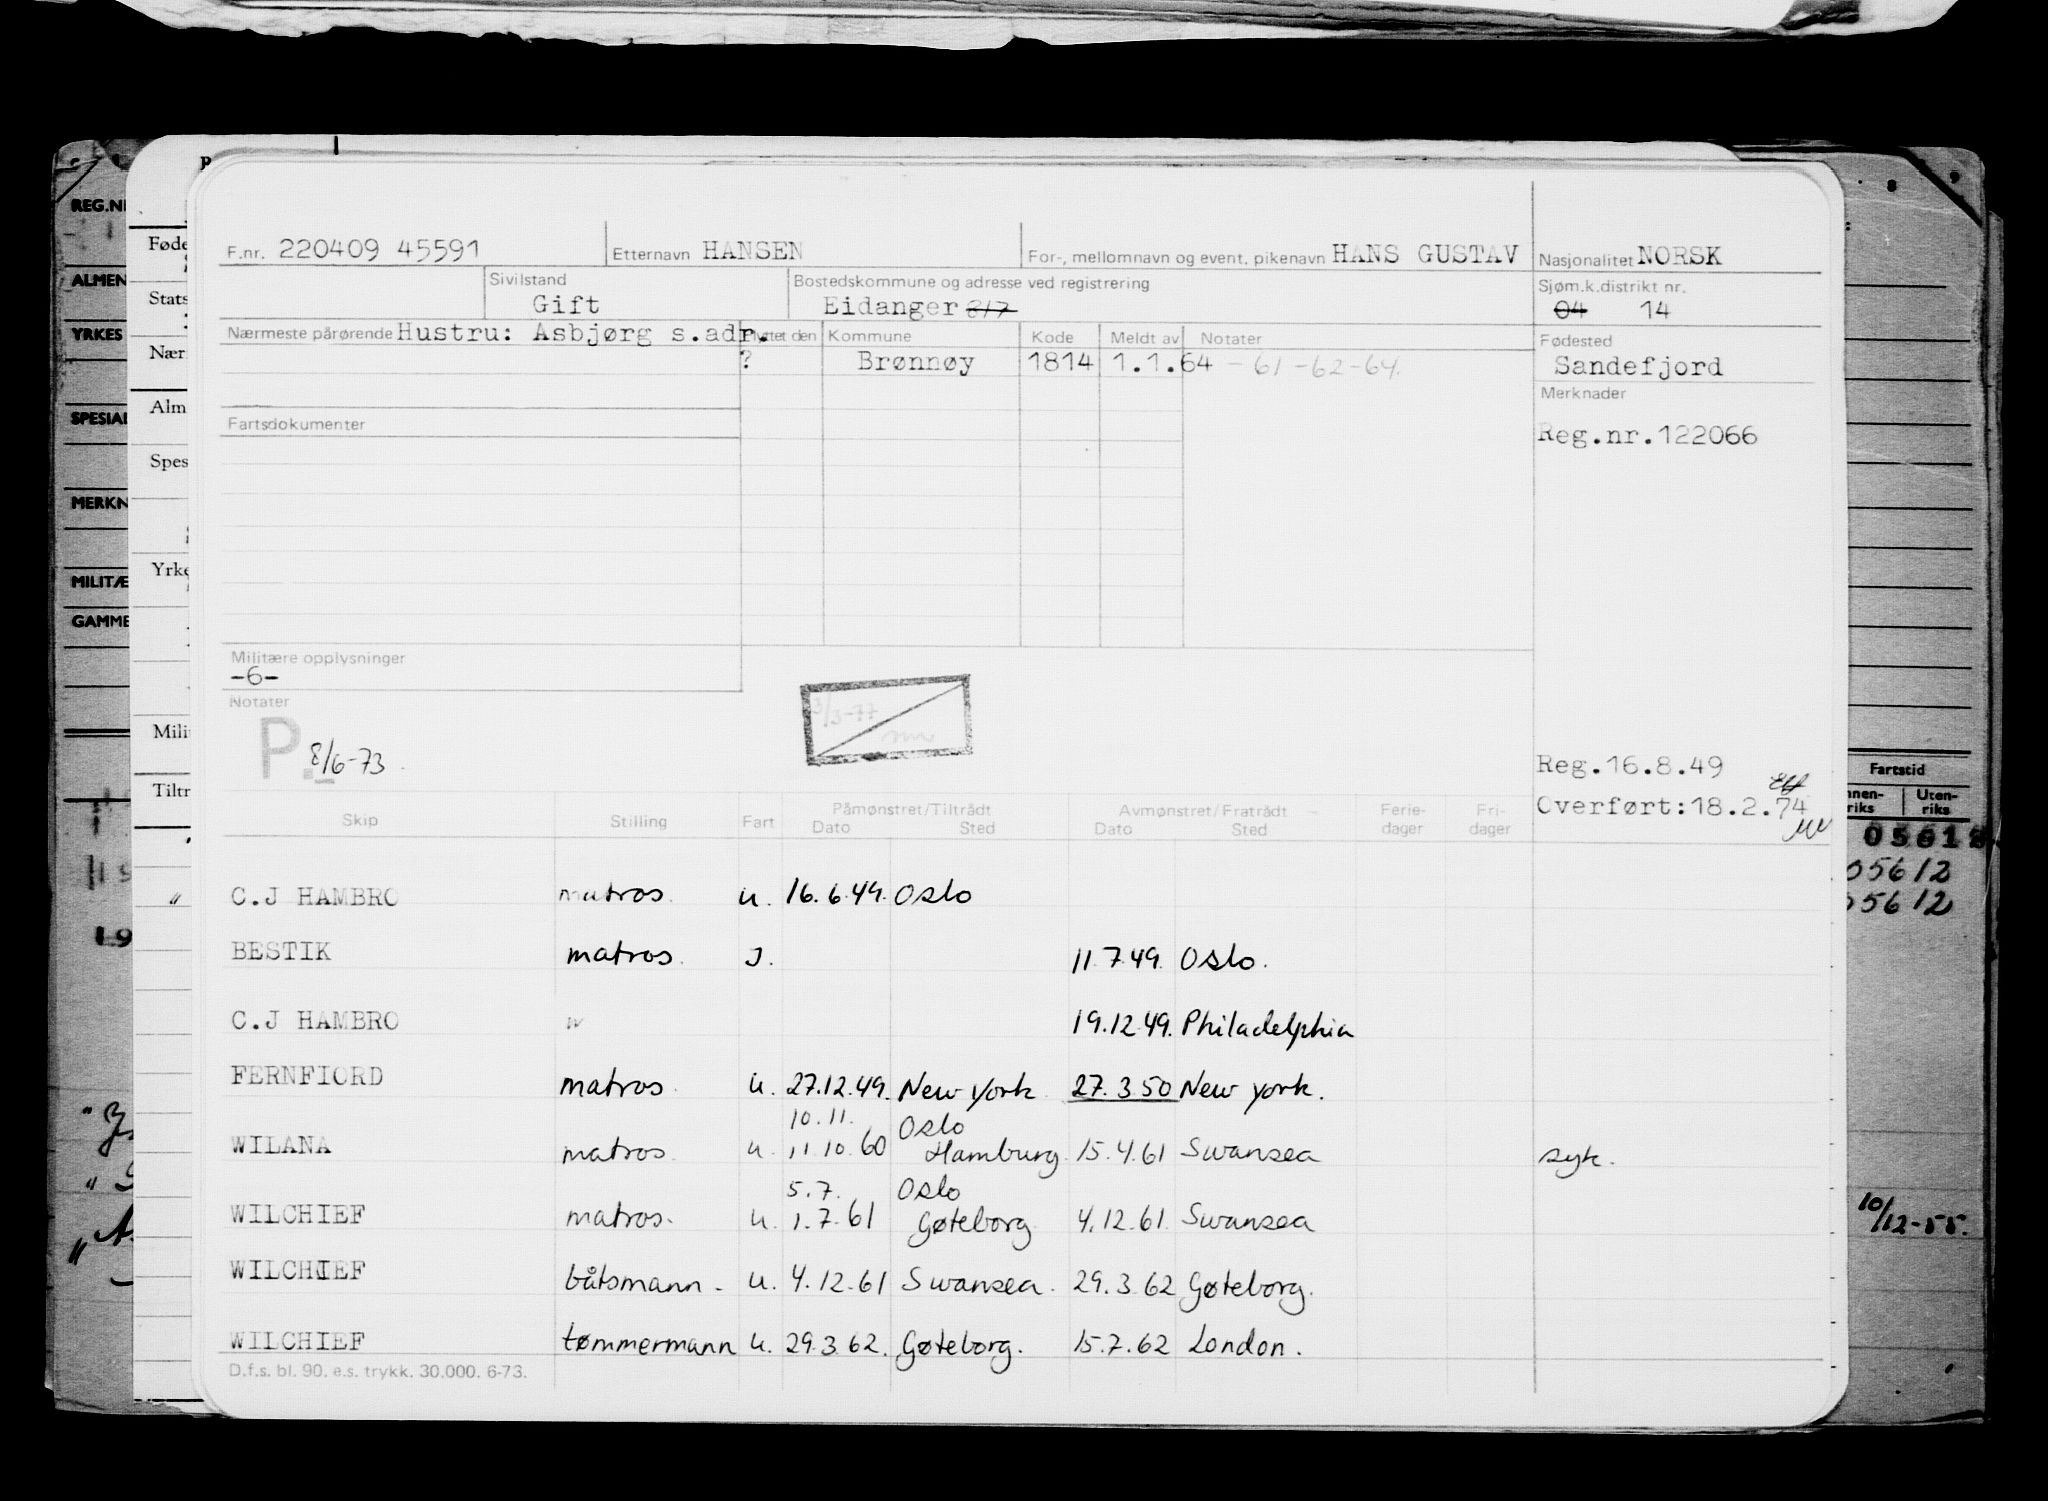 F.nr. 220409 45591 Etternavn HANSEN For-, mellomnavn og event. pikenavn HANS GUSTAV Nasjonalitet NORSK
Sivilstand Bostedskommune og adresse ved registrering Sjøm.k.distrikt nr.
Gift Eidanger 817 04 14
Nærmeste pårørende Hustru: Asbjørg s.adr. Flyttet den Kommune Kode Meldt av Notater Fødested
? Brønnøy 1814 1.1.64 -61-62-64. Sandefjord
Merknader
Fartsdokumenter
Reg.nr.122066
Militære opplysninger
-6-
Notater
P. 8/6-73.
3/3-77
Reg.16.8.49
Overført:18.2.74
Skip Stilling Fart Påmønstret/Tiltrådt Avmønstret/Fratrådt Ferie-dager Fri-dager
Dato Sted Dato Sted
C.J HAMBRO matros. u. 16.6.49. Oslo
BESTIK matros. J. 11.7.49. Oslo.
C.J HAMBRO " 19.12.49. Philadelphia
FERNFIORD matros. u. 27.12.49. New York 27.3.50 New York.
10.11. Oslo
WILANA matros. u. 11.10.60 Hamburg. 15.4.61 Swansea syk.
5.7. Oslo
WILCHIEF matros. u. 1.7.61 Gøteborg 4.12.61. Swansea
WILCHIEF båtsmann. u. 4.12.61 Swansea. 29.3.62 Gøteborg.
WILCHIEF tømmermann u. 29.3.62. Gøteborg. 15.7.62 London.
D.f.s. bl. 90. e.s. trykk. 30.000. 6-73.
REG.NR
ALMEN
YRKES
SPESIAL
MERKN
MILITÆ
GAMME
Føde
Stats
Nær
Alm
Spes
Yrke
Mili
Tiltr
19
8 9
Fartstid
nnen-riks Uten-riks
05612
05612
05612
10/12-55.